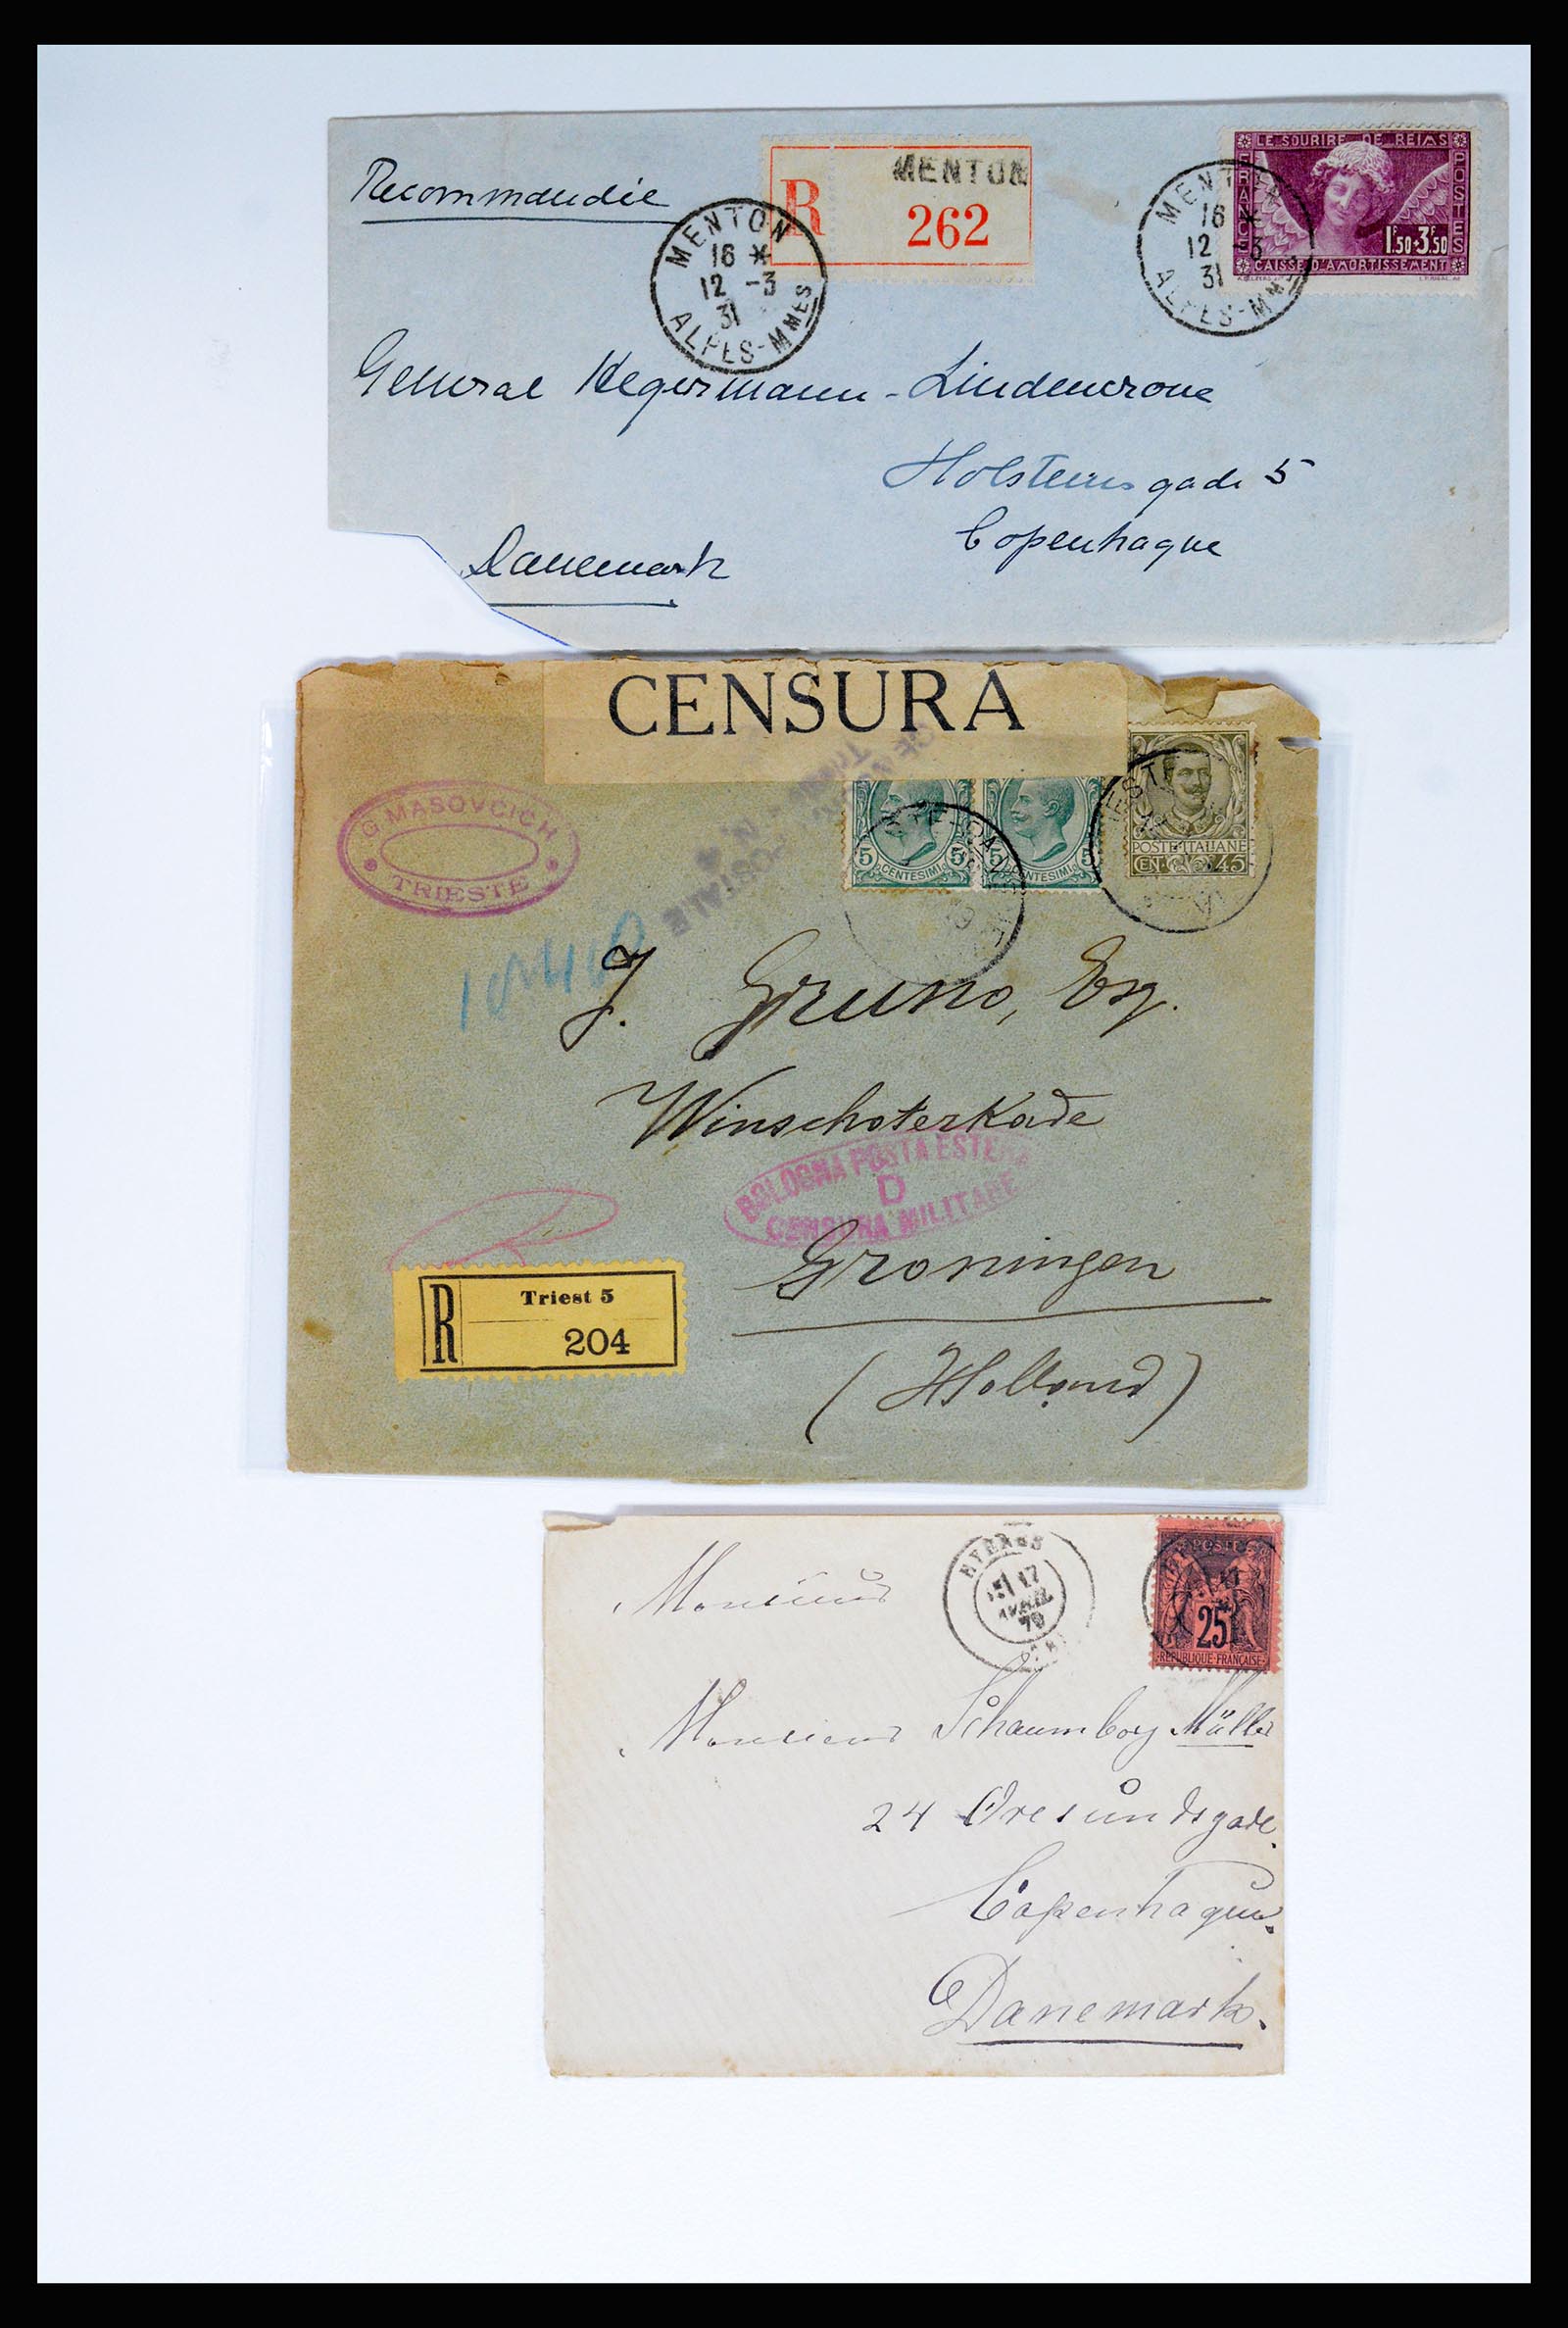 Recommandée
R
MENTON
262
MENTON
16 *
12 -3
31
ALPES-MMES
LE SOURIRE DE REIMS
FRANCE
POSTES
1F50+3F50
CAISSE D'AMORTISSEMENT
MENTON
16 *
12 -3
31
ALPES-MMES
General Hegermann-Lindencrone
Holsteinsgade 5
Copenhague
Danemark
CENSURA
G. MASOVCICH
TRIESTE
POSTALE
N. 4
5 5
CENTESIMI
5 5
CENTESIMI
POSTE ITALIANE
CENT. 45
J. Gruno, Esq.
Winschoterkade
BOLOGNA POSTA ESTERA
D
CENSURA MILITARE
Groningen
(Holland)
R
Triest 5
204
HYERES
17
AVRIL
79
POSTES
25
REPUBLIQUE FRANÇAISE
Monsieur
Monsieur Schaumborg Müller
24 Øresundsgade.
Copenhague.
Danemark.